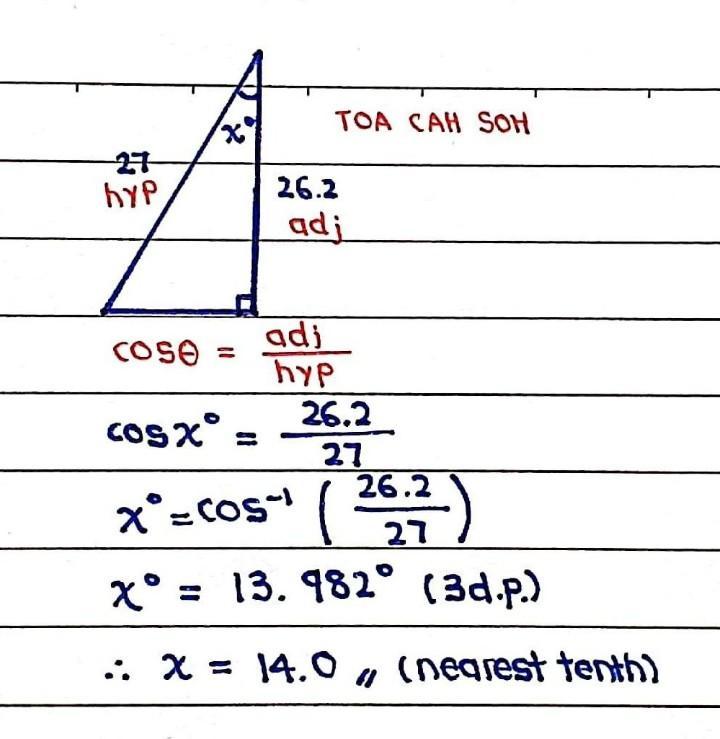 x°
TOA CAH SOH
27
hyp
26.2
adj
cosθ = adj/hyp
cosx° = 26.2/27
x° = cos⁻¹ (26.2/27)
x° = 13.982° (3d.p.)
∴ x = 14.0 〃 (nearest tenth)